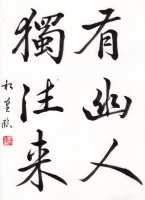 有幽人
獨往来